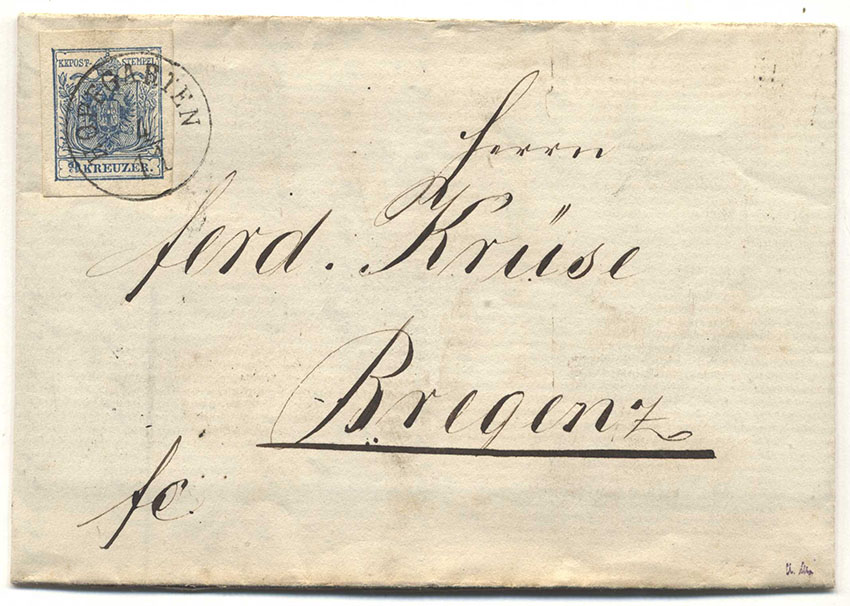 KKPOST-STEMPEL
9 KREUZER
Herrn
Ferd. Krüse
Bregenz
fc.